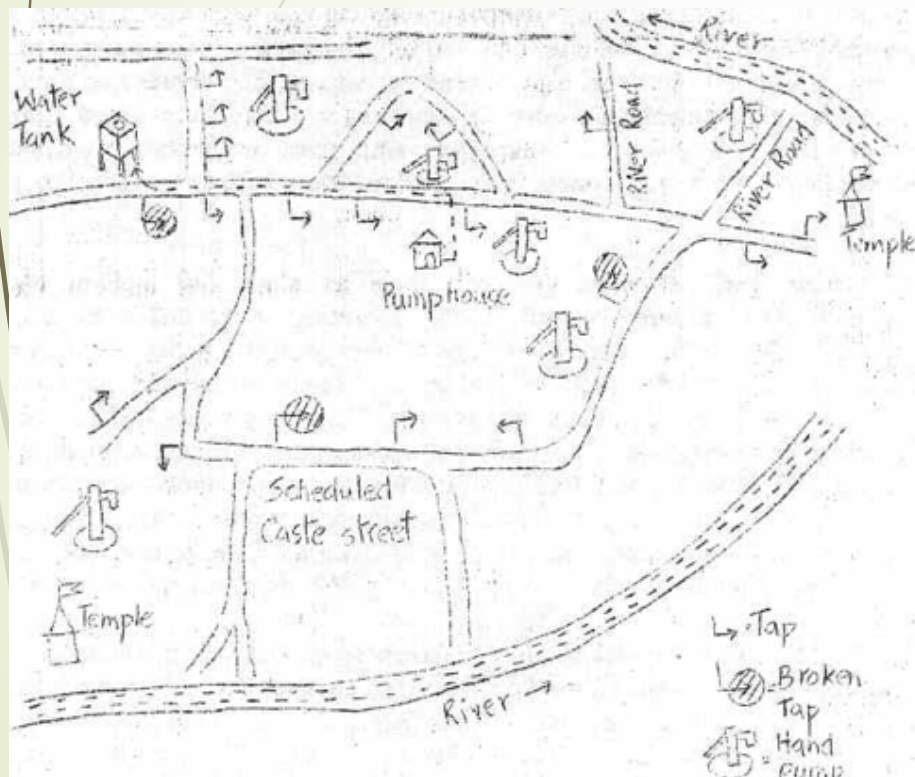 River
Water
Tank
River Road
River Road
Temple
Pumphouse
Scheduled
Caste street
Temple
River
Tap
Broken
Tap
= Hand
Pump